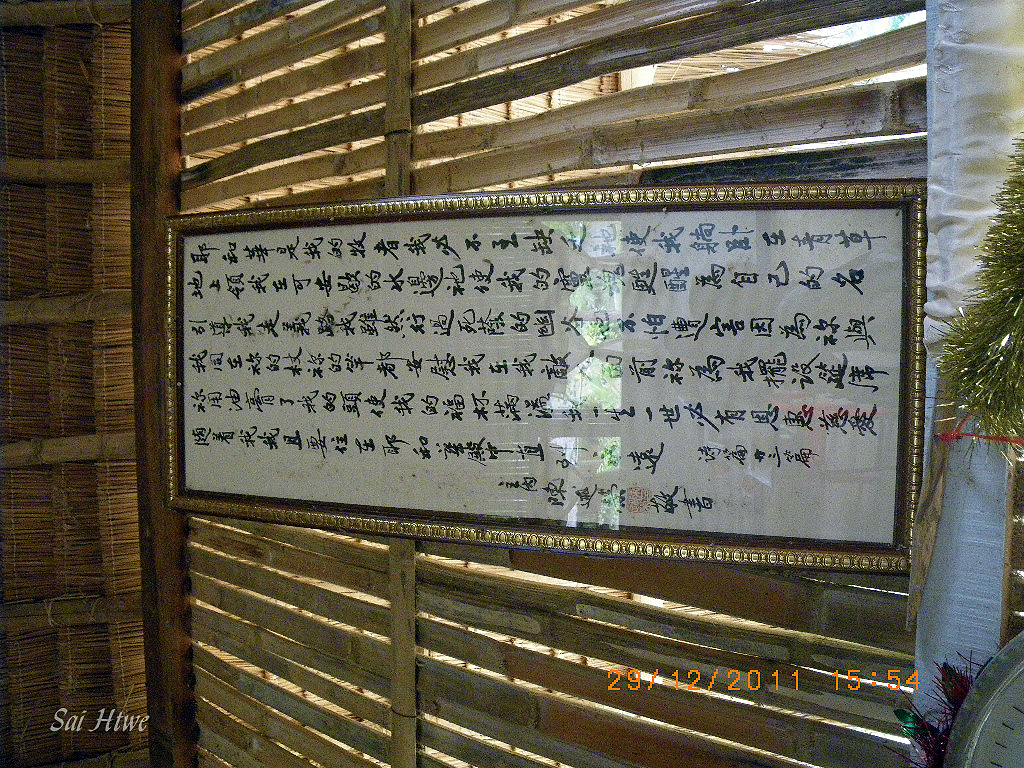 耶和華是我的牧者我必不至缺乏祂使我躺臥在青草
地上領我在可安歇的水邊祂使我的靈魂甦醒為自己的名
引導我走義路我雖然行過死蔭的幽谷也不怕遭害因為祢與
我同在祢的杖祢的竿都安慰我在我敵人的前祢為我擺設筵席
祢用油膏了我的頭使我的福杯滿溢我一生一世必有恩惠慈愛
隨着我我且要住在耶和華殿中直到永遠 詩篇廿三篇
主內陳 敬書
29/12/2011 15:54
Sai Htwe